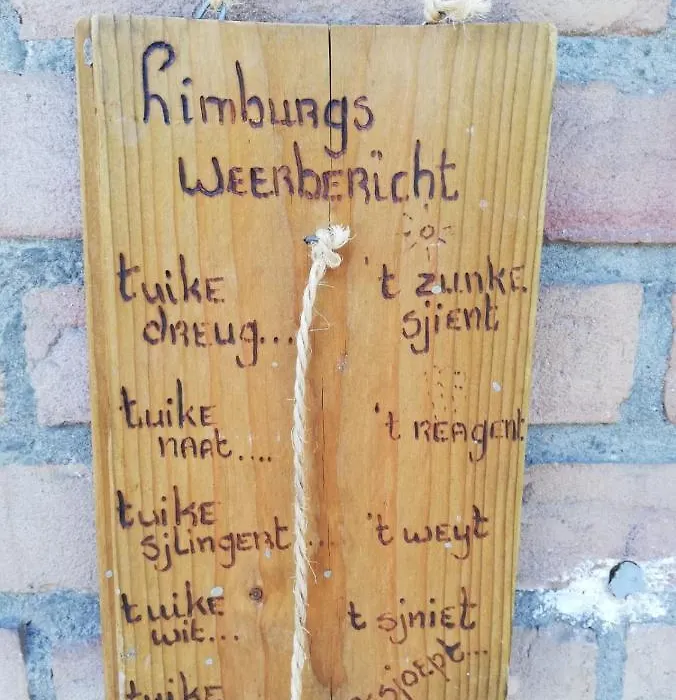 Limburgs
weerbericht
tuike
dreug...
't zunke
sjient
tuike
naat....
't reagent
tuike
sjlingert...
't weyt
tuike
wit...
t sjniet
tuike
sjoept...